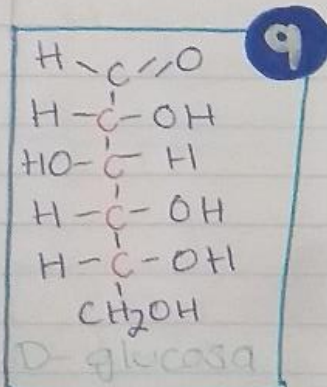 9
H C=O
H-C-OH
HO-C-H
H-C-OH
H-C-OH
CH₂OH
D-glucosa